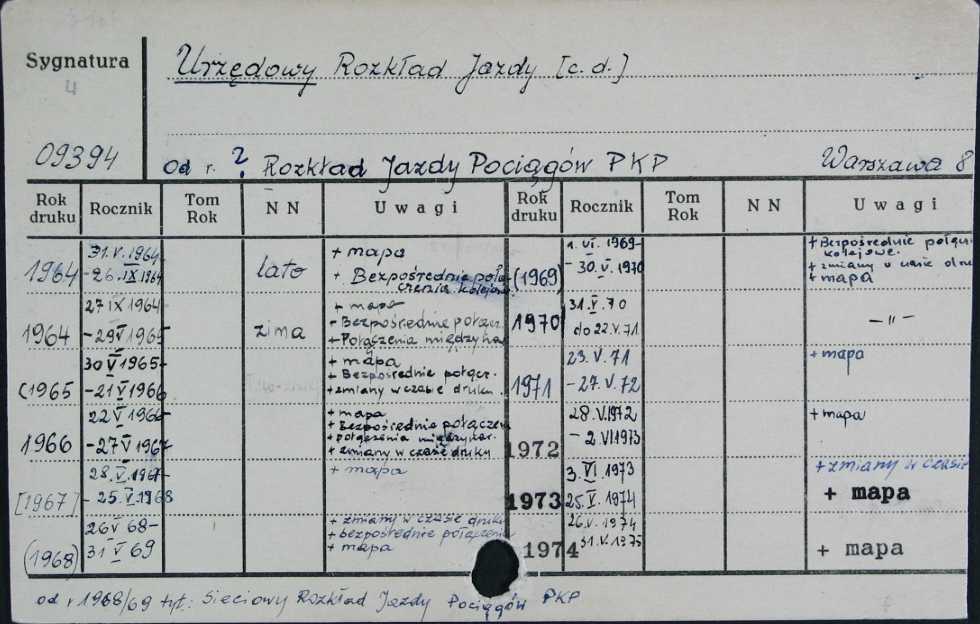 Sygnatura
4
Urzędowy Rozkład Jazdy [c.d.]
09394
Od r. ? Rozkład Jazdy Pociągów PKP Warszawa 8
Rok druku Rocznik Tom Rok NN Uwagi Rok druku Rocznik Tom Rok NN Uwagi
1964 31.V.1964 - 26.IX 1964 lato + mapa
+ Bezpośrednie połączenia kolejowe
1964 27 IX 1964 - 29 V 1965 zima + mapa
+ Bezpośrednie połącz.
+ Połączenia międzynar
(1965 30 V 1965 - 21 V 1966 + mapa
+ Bezpośrednie połącz.
+ zmiany w czasie druku.
1966 22 V 1966 - 27 V 1967 + mapa
+ Bezpośrednie połączen
+ połączenia międzynar.
+ zmiany w czasie druku
[1967] 28.V.1967 - 25.V.1968 + mapa
(1968) 26 V 68 - 31 V 69 + zmiany w czasie druku
+ bezpośrednie połączenia
+ mapa
(1969) 1.VI.1969 - 30.V.1970 + Bezpośrednie połącz
kolejowe.
+ zmiany w czasie dru
+ mapa
1970 31.V.70 do 22.V.71 - " -
1971 23.V.71 - 27.V.72 + mapa
1972 28.V.1972 - 2.VI 1973 + mapa
1973 3.VI.1973 25.V.1974 + zmiany w czasie
+ mapa
1974 26.V.1974 31.V.1975 + mapa
od r 1968/69 tyt.: Sieciowy Rozkład Jazdy Pociągów PKP